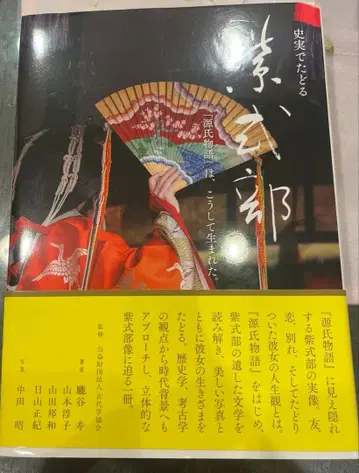 史実でたどる
紫式部
『源氏物語』は、こうして生まれた。
『源氏物語』に見え隠れ
する紫式部の実像。友、
恋、別れ、そしてたどり
ついた彼女の人生観とは。
『源氏物語』をはじめ、
紫式部の遺した文学を
読み解き、美しい写真と
ともに彼女の生きざまを
たどる。歴史学、考古学
の観点から時代背景へも
アプローチし、立体的な
紫式部像に迫る一冊。
監修 公益財団法人古代学協会
著者 朧谷 寿
山本淳子
山田邦和
日山正紀
写真 中田 昭